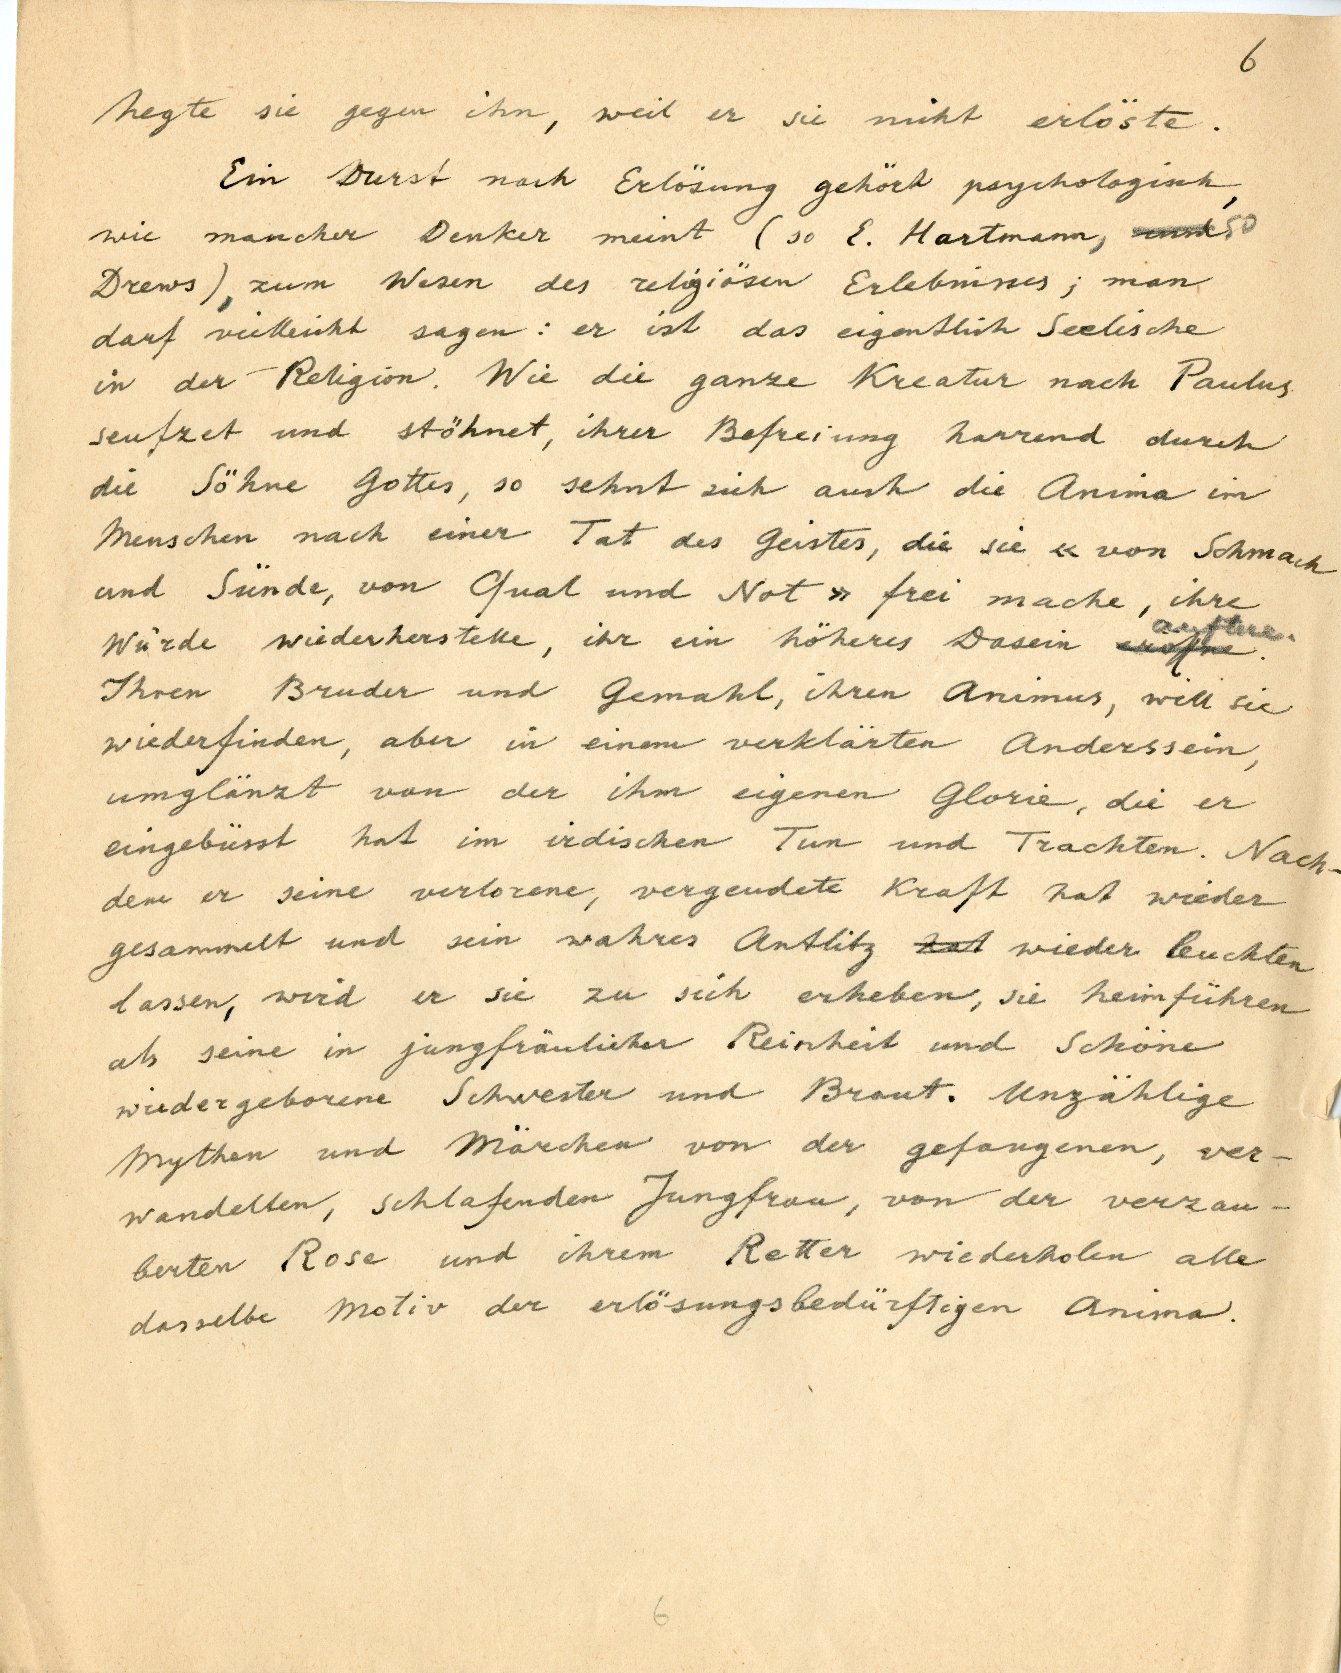 6
hegte sie gegen ihn, weil er sie nicht erlöste.
Ein Durst nach Erlösung gehört psychologisch,
wie mancher Denker meint (so E. Hartmann, und so
Drews), zum Wesen des religiösen Erlebnisses; man
darf vielleicht sagen: er ist das eigentlich Seelische
in der Religion. Wie die ganze Kreatur nach Paulus
seufzet und stöhnet, ihrer Befreiung harrend durch
die Söhne Gottes, so sehnt sich auch die Anima im
Menschen nach einer Tat des Geistes, die sie « von Schmach
und Sünde, von Qual und Not » frei mache, ihre
Würde wiederherstelle, ihr ein höheres Dasein
Ihren Bruder und Gemahl, ihren Animus, will sie
wiederfinden, aber in einem verklärten Anderssein,
umglänzt von der ihm eigenen Glorie, die er
eingebüsst hat im irdischen Tun und Trachten. Nach-
dem er seine verlorene, vergeudete Kraft hat wieder
gesammelt und sein wahres Antlitz hat wieder leuchten
lassen, wird er sie zu sich erheben, sie heimführen
als seine in jungfräulicher Reinheit und Schöne
wiedergeborene Schwester und Braut. Unzählige
Mythen und Märchen von der gefangenen, ver-
wandelten, schlafenden Jungfrau, von der verzau-
berten Rose und ihrem Retter wiederholen alle
dasselbe Motiv der erlösungsbedürftigen Anima.
6